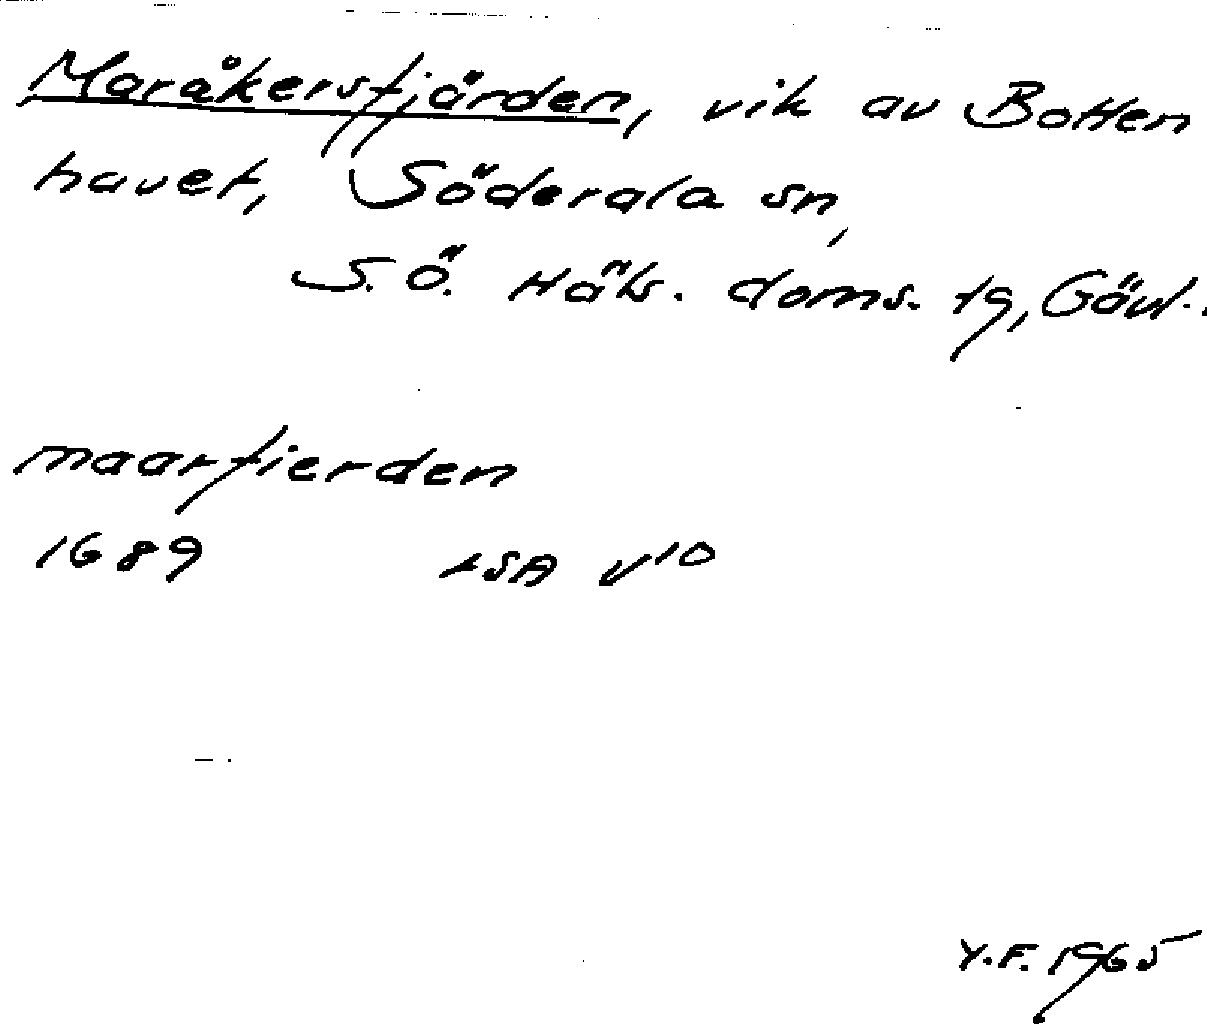 Maråkersfjärden, vik av Botten
havet, Söderala sn,
S.Ö. Häls. doms. tg, Gävl.
maarfierden
1689 LSA V10
Y.F. 1965